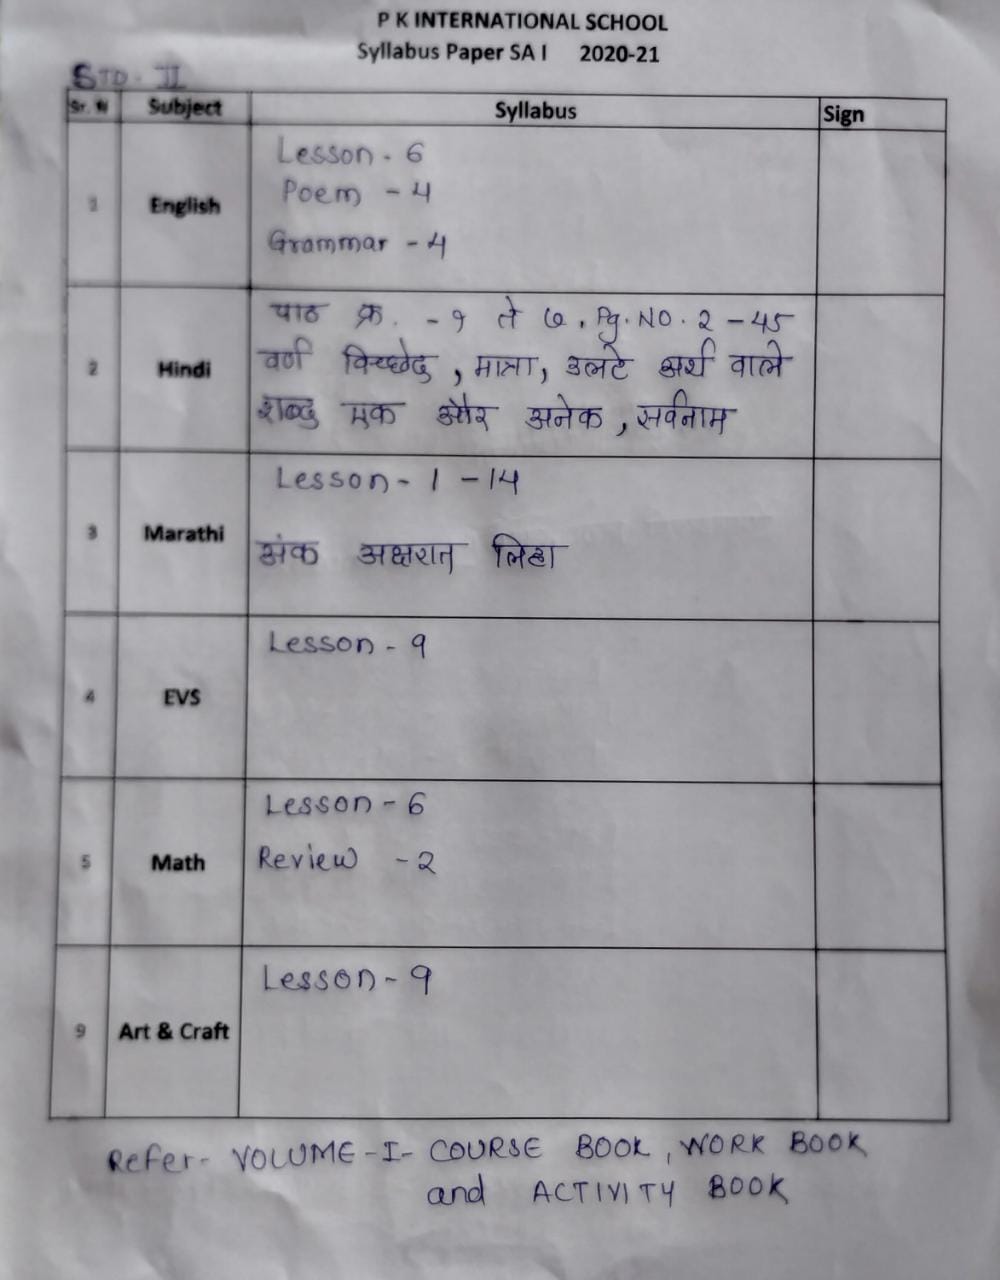 P K INTERNATIONAL SCHOOL
Syllabus Paper SA I 2020-21
STD - II
Sr. N Subject Syllabus Sign
1 English
Lesson - 6
Poem - 4
Grammar - 4
2 Hindi
पाठ क्र. - १ ते ७. Pg. NO. 2 - 45
वर्ण विच्छेद, मात्रा, उलटे अर्थ वाले
शब्द एक और अनेक, सर्वनाम
3 Marathi
Lesson - 1 - 14
अंक अक्षरात लिहा
4 EVS
Lesson - 9
5 Math
Lesson - 6
Review - 2
9 Art & Craft
Lesson - 9
Refer - VOLUME - I - COURSE BOOK, WORK BOOK
and ACTIVITY BOOK